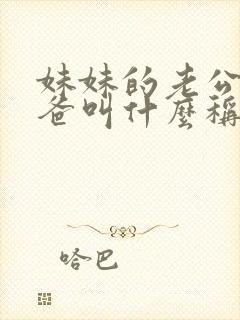 妹妹的老公
爸叫什麼稱
哈巴